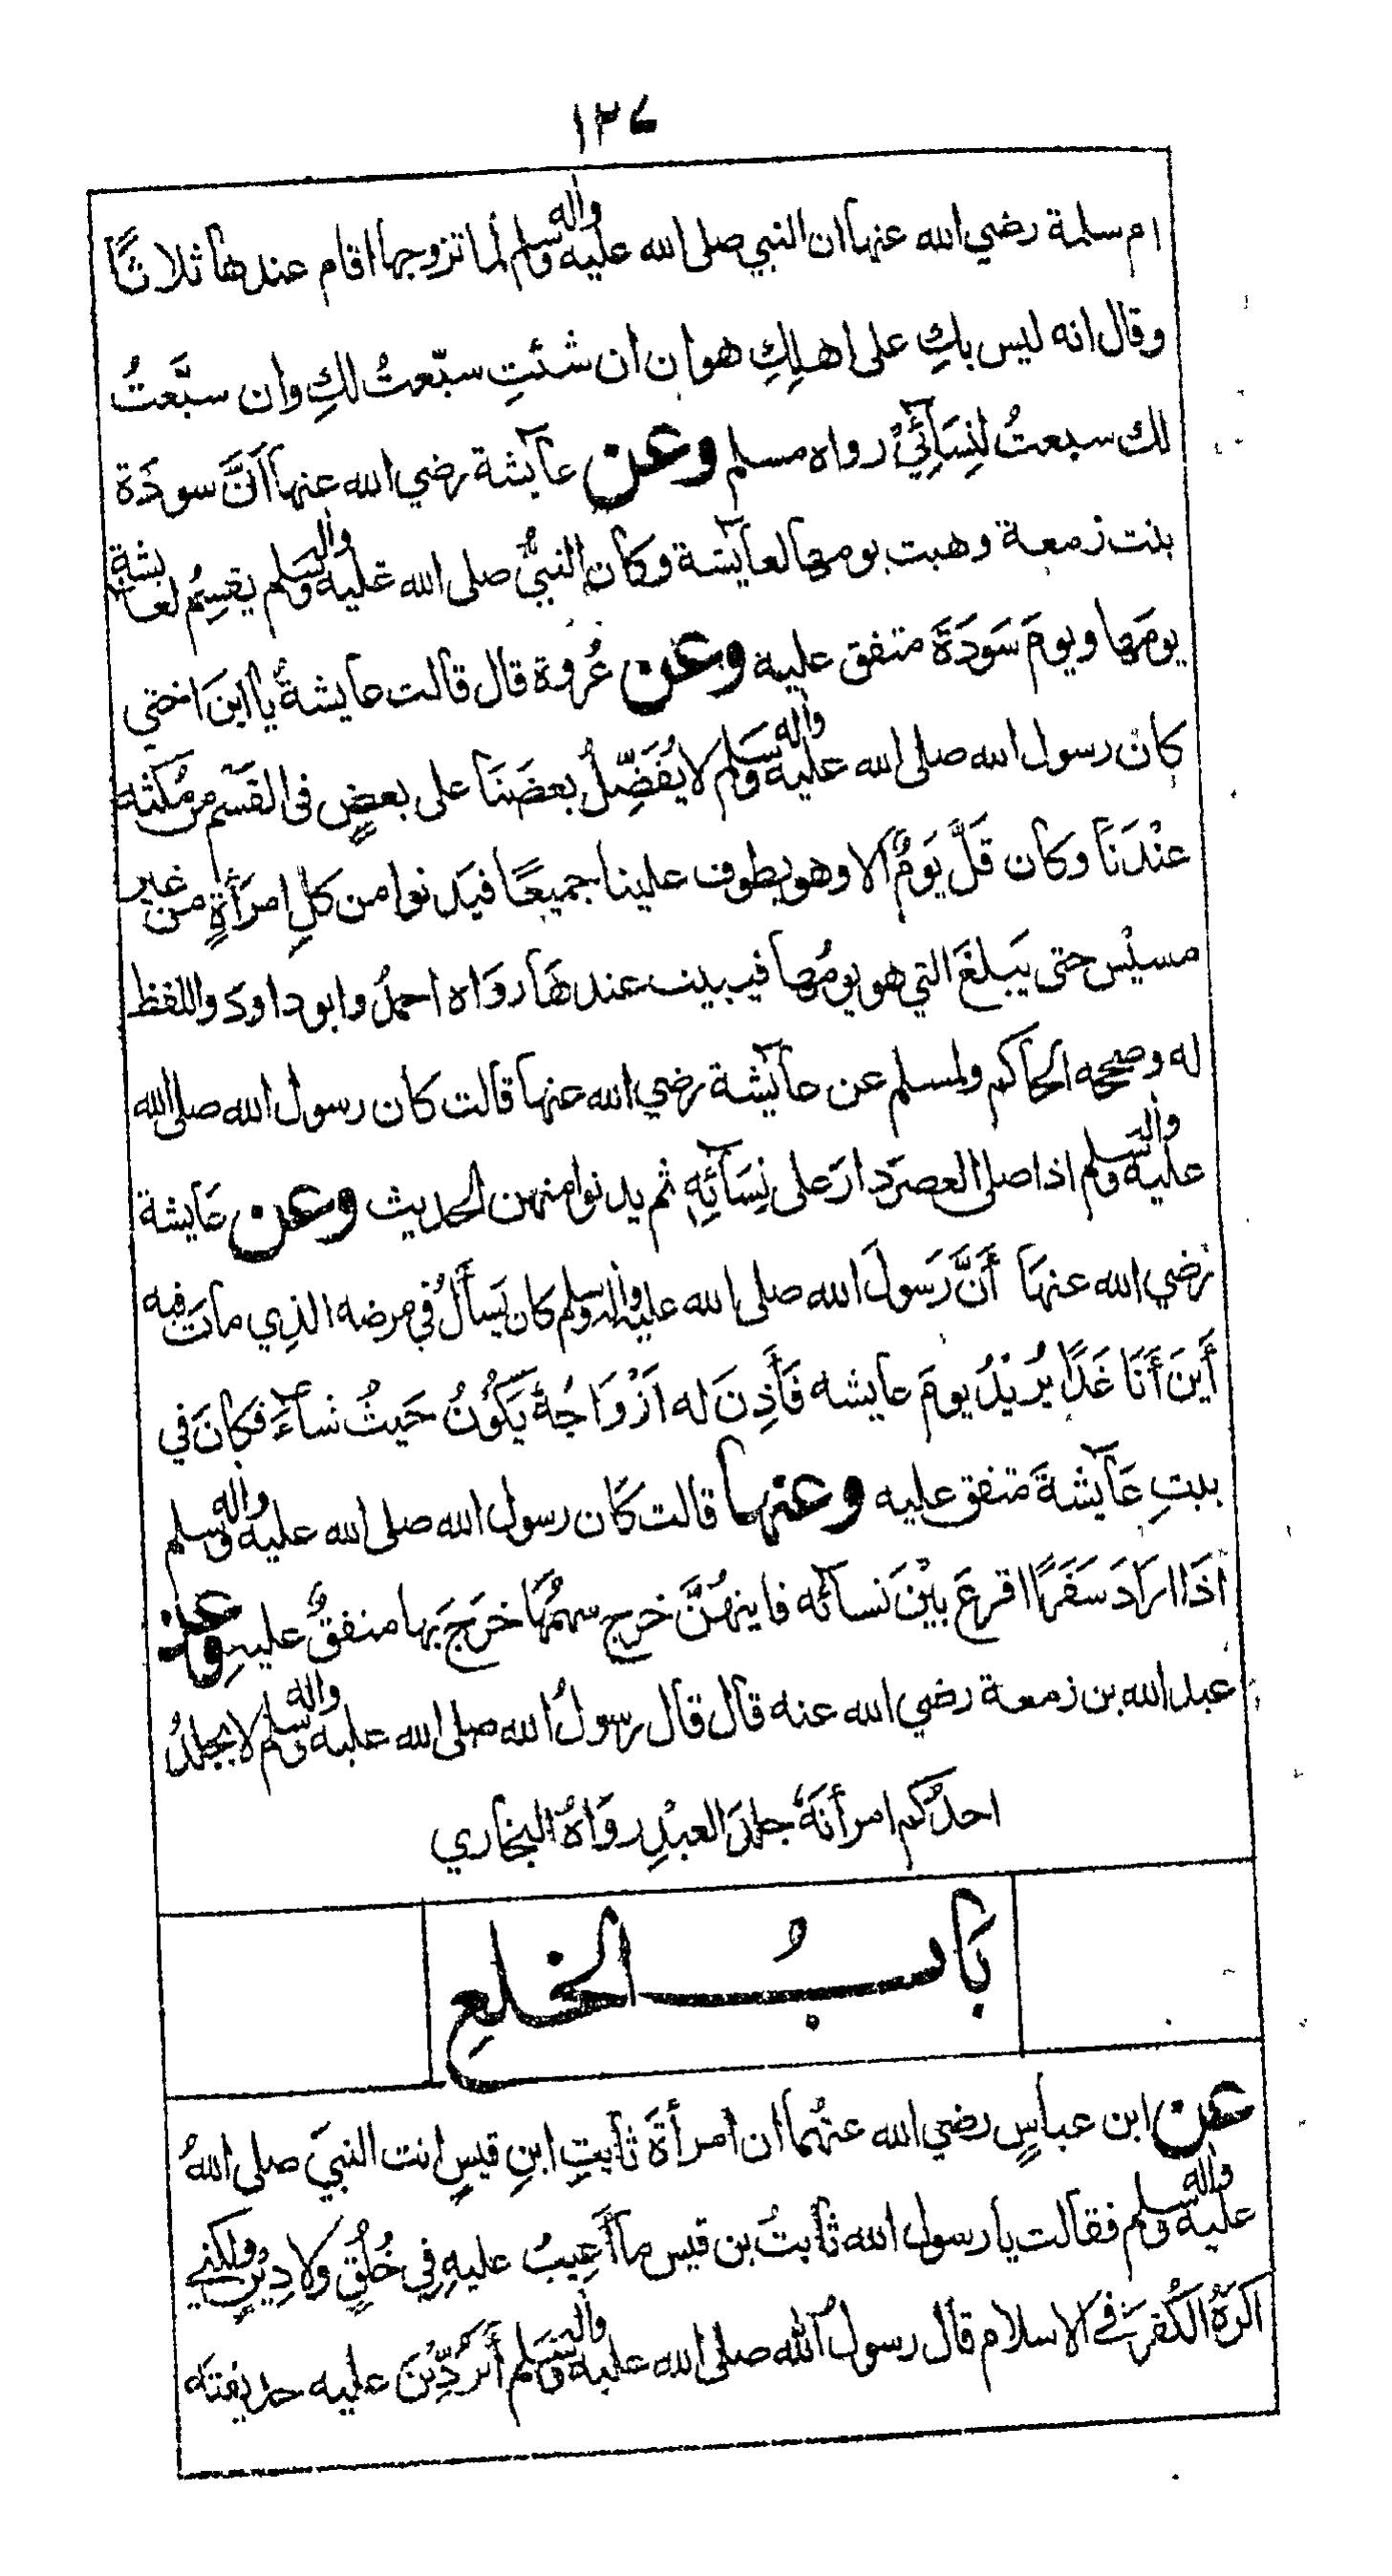 ١٢٧
ام سلمة رضي الله عنها ان النبي صلى الله عليه واله وسلم لما تزوجها اقام عندها ثلاثًا
وقال انه ليس بكِ على اهلِكِ هوان ان شئتِ سبّعتُ لكِ وان سبَّعتُ
لك سبعتُ لنِسَآئِيْ رواه مسلم وعن عآيشة رضي الله عنها اَنَّ سودَة
بنت زمعة وهبت يومها لعآيشة وكان النبيُّ صلى الله عليه واله وسلم يقسِمُ لعايشة
يومَها ويومَ سَودَةَ متفق عليه وعن عُروة قال قالت عايشةُ يا ابنَ اختي
كان رسول الله صلى الله عليه واله وسَلم لا يُفَضِّلُ بعضَنَا على بعضٍ في القَسْم من مُكثه
عنْدَنَا وكان قَلَّ يَومٌ الا وهو يطوف علينا جميعًا فيَدنوا من كلِ امرَأةٍ من غير
مسيْس حتى يَبلغَ التي هو يومُها فيبيت عندهَا رواه احمدُ وابو داود واللفظ
له وصححه الحاكم ولمسلم عن عآيشة رضي الله عنها قالت كان رسول الله صلى الله
عليه واله وسلم اذا صلى العصرَ دارَ على نِسَآئِهِ ثم يدنوا منهن الحديث وعن عَايشة
رَضي الله عنهَا أَنَّ رَسولَ الله صلى الله عليه واله وسلم كان يَسأَلُ في مرضه الذِي ماتَ فيه
أَينَ أَنَا غَدًا يُريْدُ يومَ عايشه فَأَذِنَ له اَزْوَاجُهُ يَكُوْنُ حَيثُ شآءَ فكانَ في
بيتِ عَآيشةَ متفق عليه وعنها قالت كان رسول الله صلى الله عليه واله وسلم
اذَا ارَادَ سَفَرًا اقرعَ بيْنَ نسآئه فايتهُنَّ خرج سهمُهَا خرَجَ بها متفقٌ عليهِ وعن
عبد الله بن زمعة رضي الله عنه قال قال رسولُ الله صلى الله عليه واله وسلم لا يجلدُ
احدُكم امرأتَهُ جلدَ العبْدِ روَاهُ البخاري
بَابُ الخلعِ
عن ابن عباسٍ رضي الله عنهُما ان امرأةَ ثابتِ ابنِ قيسٍ اتت النبيَ صلى اللهُ
عليه واله وسلم فقالت يا رسول الله ثابتُ بن قيس مآ أَعِيبُ عليهِ فِي خُلُقٍ ولا دِيْنٍ ولكنِي
اكرَهُ الكُفرَ في الاسلام قال رسولُ اللهِ صلى الله عليه واله وسَلم أَتَرُدِّيْنَ عليه حديقتَه